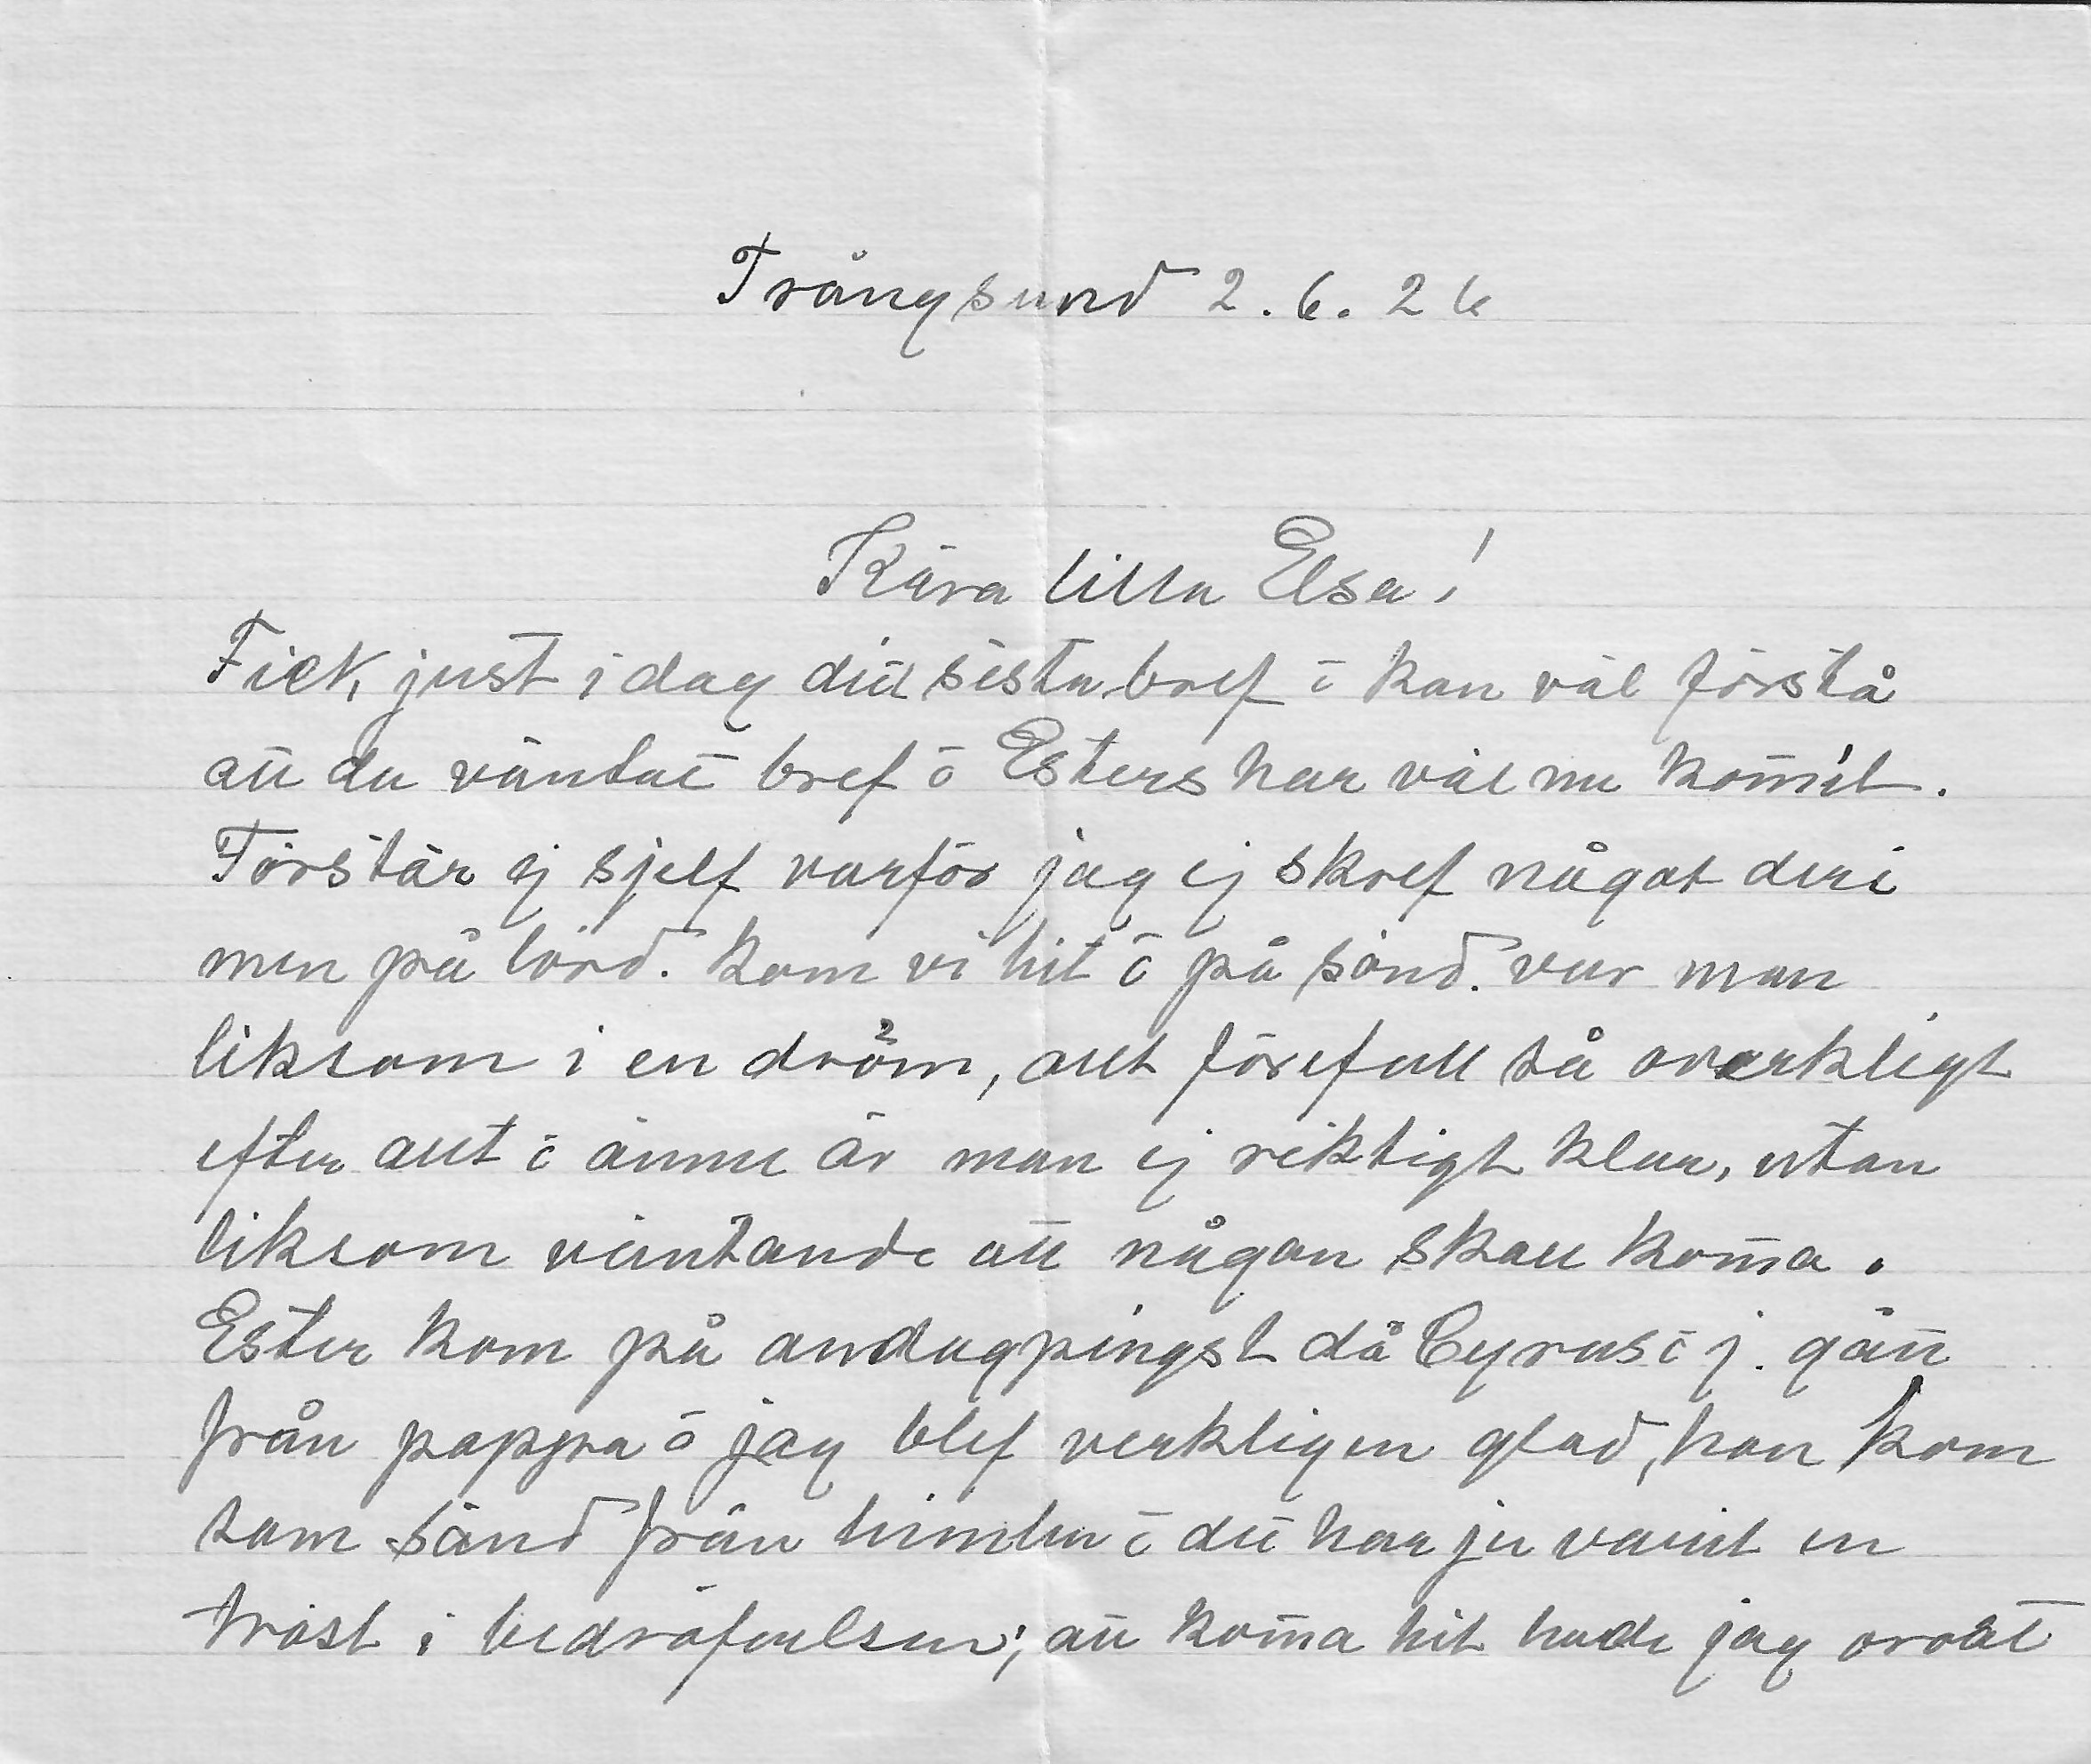 Trångsund 2.6.26
Kära lilla Elsa!
Fick just i dag ditt sista bref o kan väl förstå
att du väntat bref o Esters har väl nu kom̄it.
Förstår ej sjelf varför jag ej skref något deri
men på lörd. kom vi hit o på sönd. var man
liksom i en dröm, allt föreföll så overkligt
efter allt o ännu är man ej riktigt klar, utan
liksom väntande att någon skall kom̄a.
Ester kom på andagpingst då Cyrus o j. gått
från pappa o jag blef verkligen glad, hon kom
som sänd från himlen o det har ju varit en
tröst i bedröfvelsen; att kom̄a hit hade jag oroat